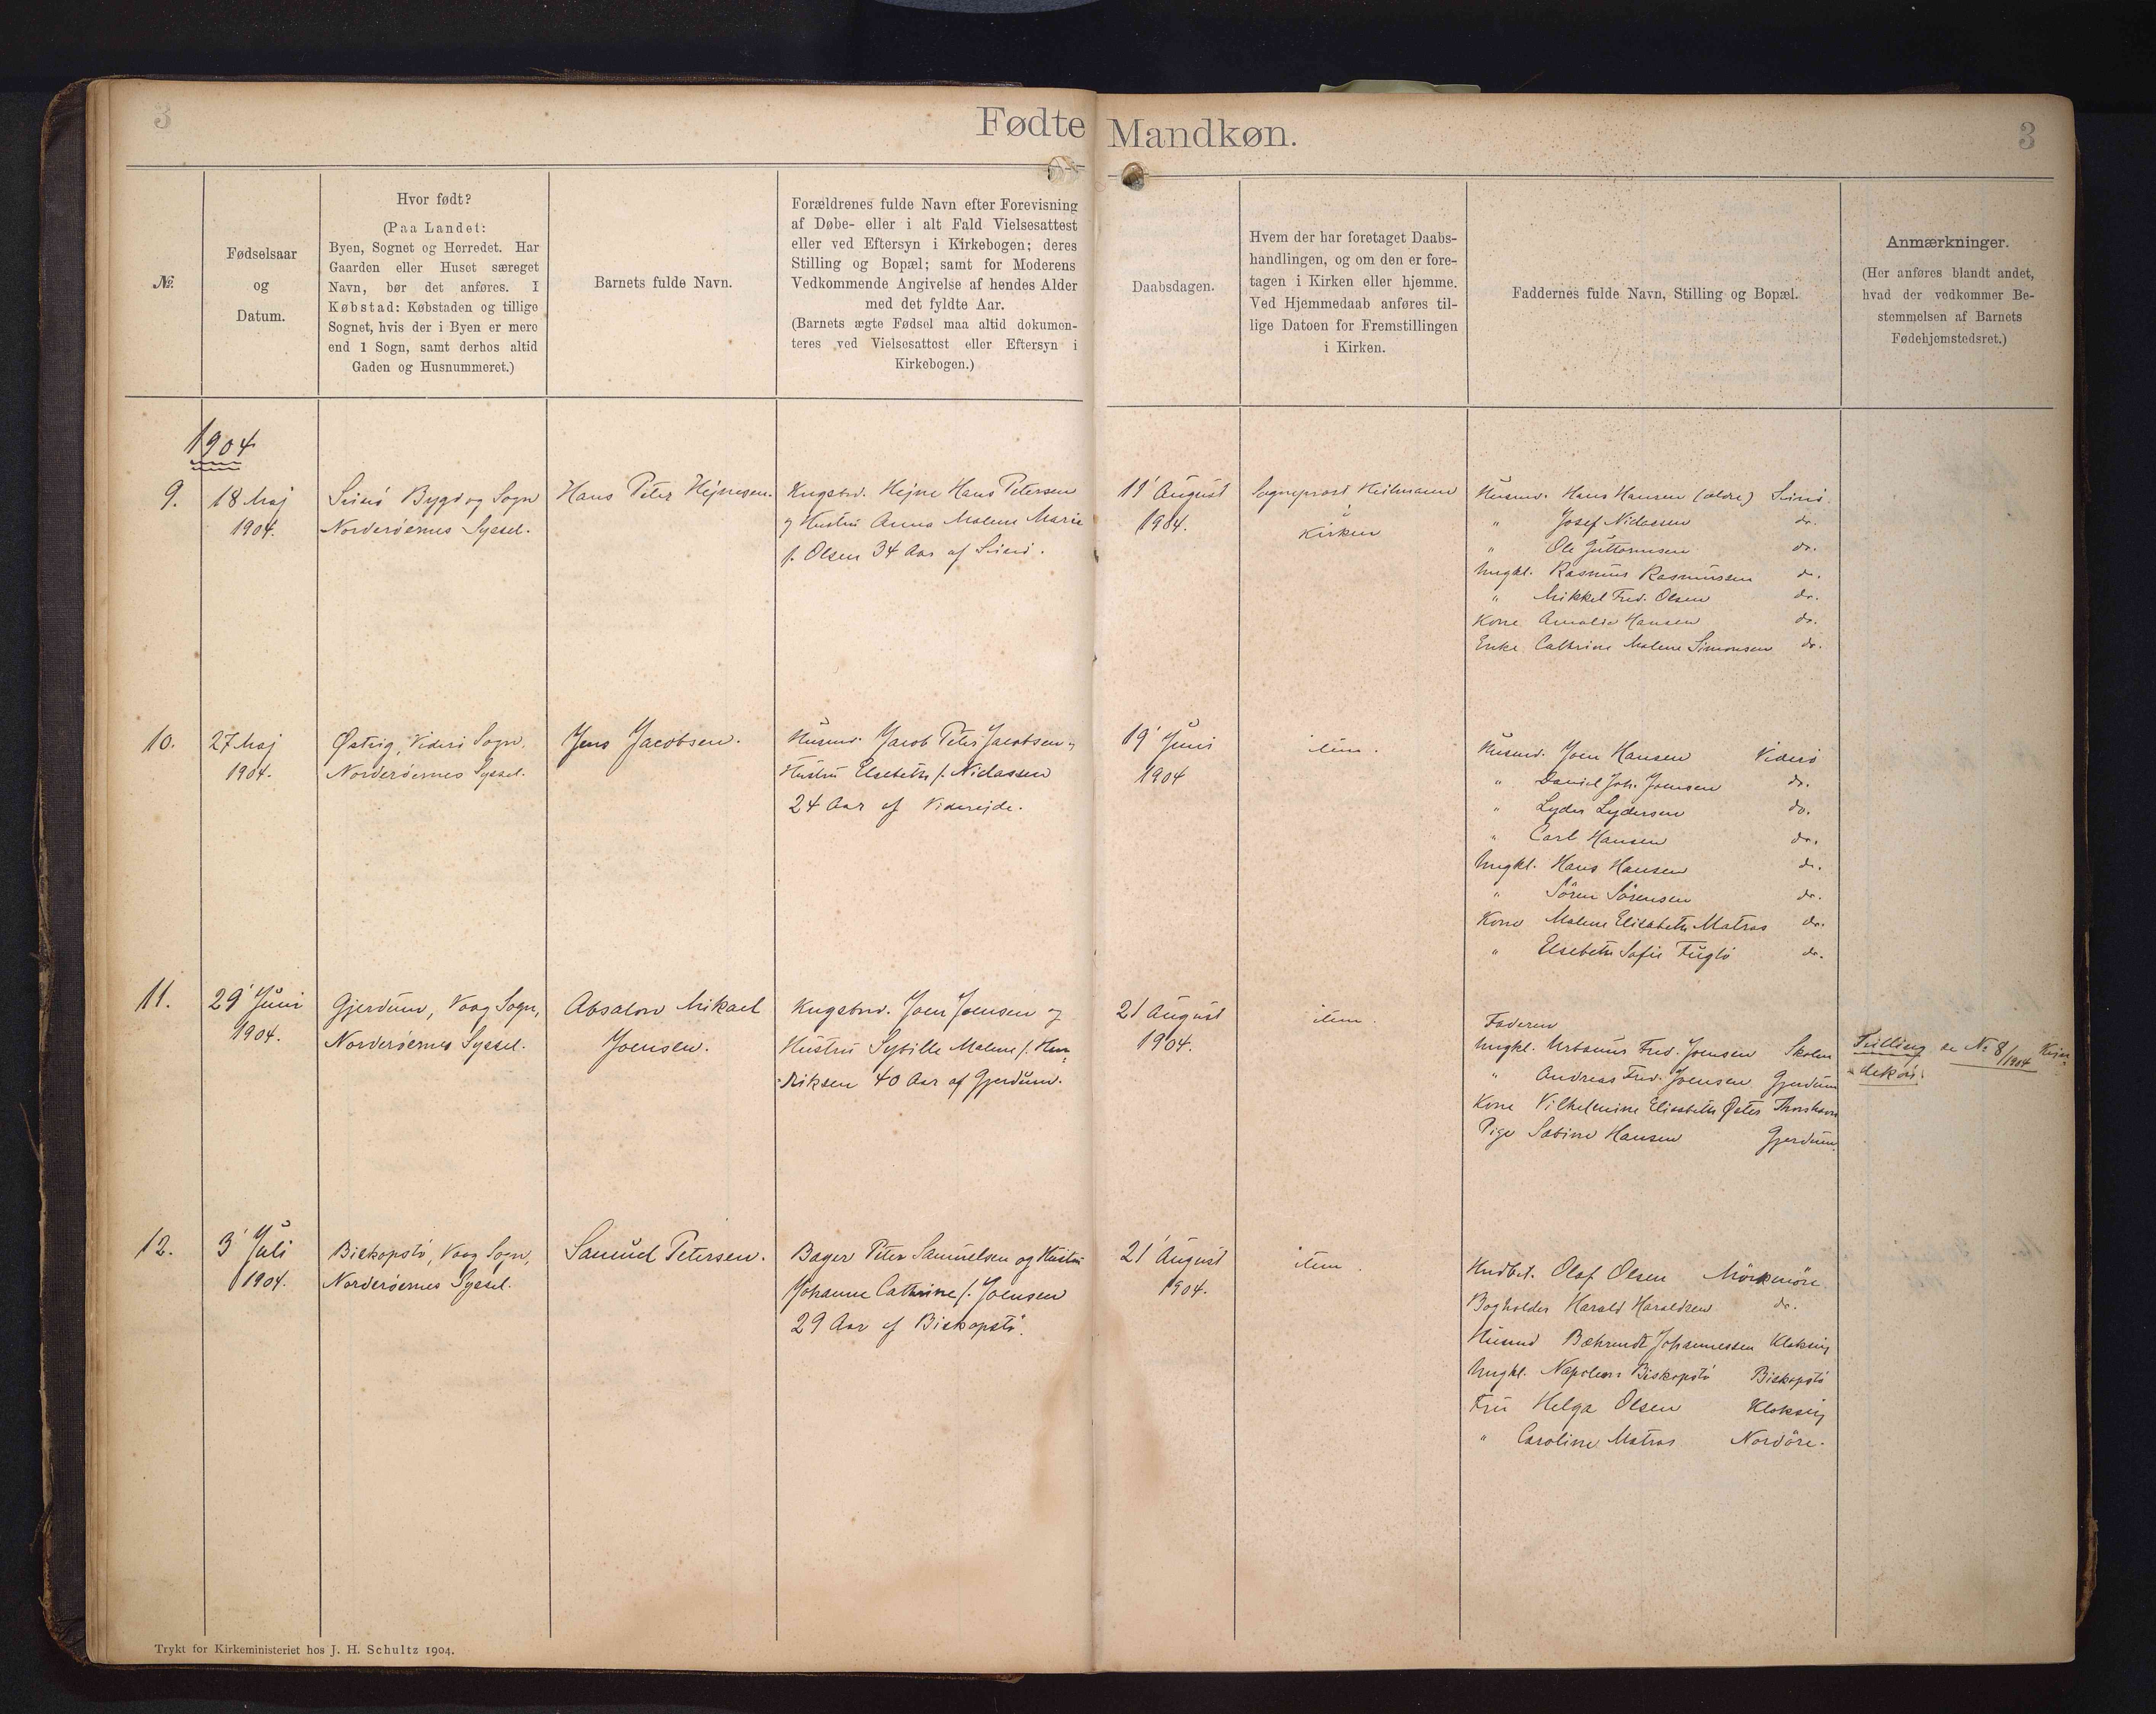 3
Fødte
Mandkøn.
3
№.
Fødselsaar
og
Datum.
Hvor født?
(Paa Landet:
Byen, Sognet og Herredet. Har
Gaarden eller Huset særeget
Navn, bør det anføres. I
Købstad: Købstaden og tillige
Sognet, hvis der i Byen er mere
end 1 Sogn, samt derhos altid
Gaden og Husnummeret.)
Barnets fulde Navn.
Forældrenes fulde Navn efter Forevisning
af Døbe- eller i alt Fald Vielsesattest
eller ved Eftersyn i Kirkebogen; deres
Stilling og Bopæl; samt for Moderens
Vedkommende Angivelse af hendes Alder
med det fyldte Aar.
(Barnets ægte Fødsel maa altid dokumen-
teres ved Vielsesattest eller Eftersyn i
Kirkebogen.)
Daabsdagen.
Hvem der har foretaget Daabs-
handlingen, og om den er fore-
tagen i Kirken eller hjemme.
Ved Hjemmedaab anføres til-
lige Datoen for Fremstillingen
i Kirken.
Faddernes fulde Navn, Stilling og Bopæl.
Anmærkninger.
(Her anføres blandt andet,
hvad der vedkommer Be-
stemmelsen af Barnets
Fødehjemstedsret.)
1904
9.
18 Maj
1904.
Svinö Bygd og Sogn
Norderöernes Syssel.
Hans Peter Hejnesen.
Kngsbnd. Hejne Hans Petersen
og Hustru Anna Malene Marie
f. Olsen 34 Aar af Svinö.
11' August
1904.
Sogneprost Heilmann
i
Kirken
Husmd. Hans Hansen (ældre) Svinö.
" Josef Niclassen do.
" Ole Guttormsen do.
Ungkl. Rasmus Rasmussen do.
" Mikkel Fred. Olsen do.
Kone Amalie Hansen do.
Enke Cathrine Malene Simonsen do.
10.
27 Maj
1904.
Østvig, Viderö Sogn,
Norderöernes Syssel.
Jens Jacobsen.
Husmd. Jacob Peter Jacobsen og
Hustru Elsebeth f. Niclassen
24 Aar af Viderejde.
19' Juni
1904
item.
Husmd. Joen Hansen Viderö
" Daniel Joh. Joensen do.
" Lyder Lydersen do.
" Carl Hansen do.
Ungkl. Hans Hansen do.
" Sören Sörensen do.
Kone Malene Elisabeth Matras do.
" Elsebeth Sofie Fuglö do.
11.
29' Juni
1904.
Gjerdum, Vaag Sogn,
Norderöernes Syssel.
Absalon Mikael
Joensen.
Kngsbnd. Joen Joensen og
Hustru Sybille Malene f. Hen-
driksen 40 Aar af Gjerdum.
21 August
1904.
item.
Faderen
Ungkl. Urbanus Fred. Joensen Skolen
" Andreas Fred. Joensen Gjerdum
Kone Vilhelmine Elisabeth Øster Thorshavn
Pige Sabine Hansen Gjerdum.
Tvilling se № 8/1904 Kvin-
dekön.
12.
3' Juli
1904.
Biskopstö, Vaag Sogn,
Norderöernes Syssel.
Samuel Petersen.
Bager Peter Samuelsen og Hustru
Johanne Cathrine f. Joensen
29 Aar af Biskopstö.
21' August
1904.
item.
Hndbet. Olaf Olsen Mörkenöre
Bogholder Harald Haraldsen do.
Husmd Bæhrendt Johannessen Klaksvig
Ungkl. Napoleon Biskopstö Biskopstö
Fru Helga Olsen Klaksvig
" Caroline Matras Nordöre.
Trykt for Kirkeministeriet hos J. H. Schultz 1904.